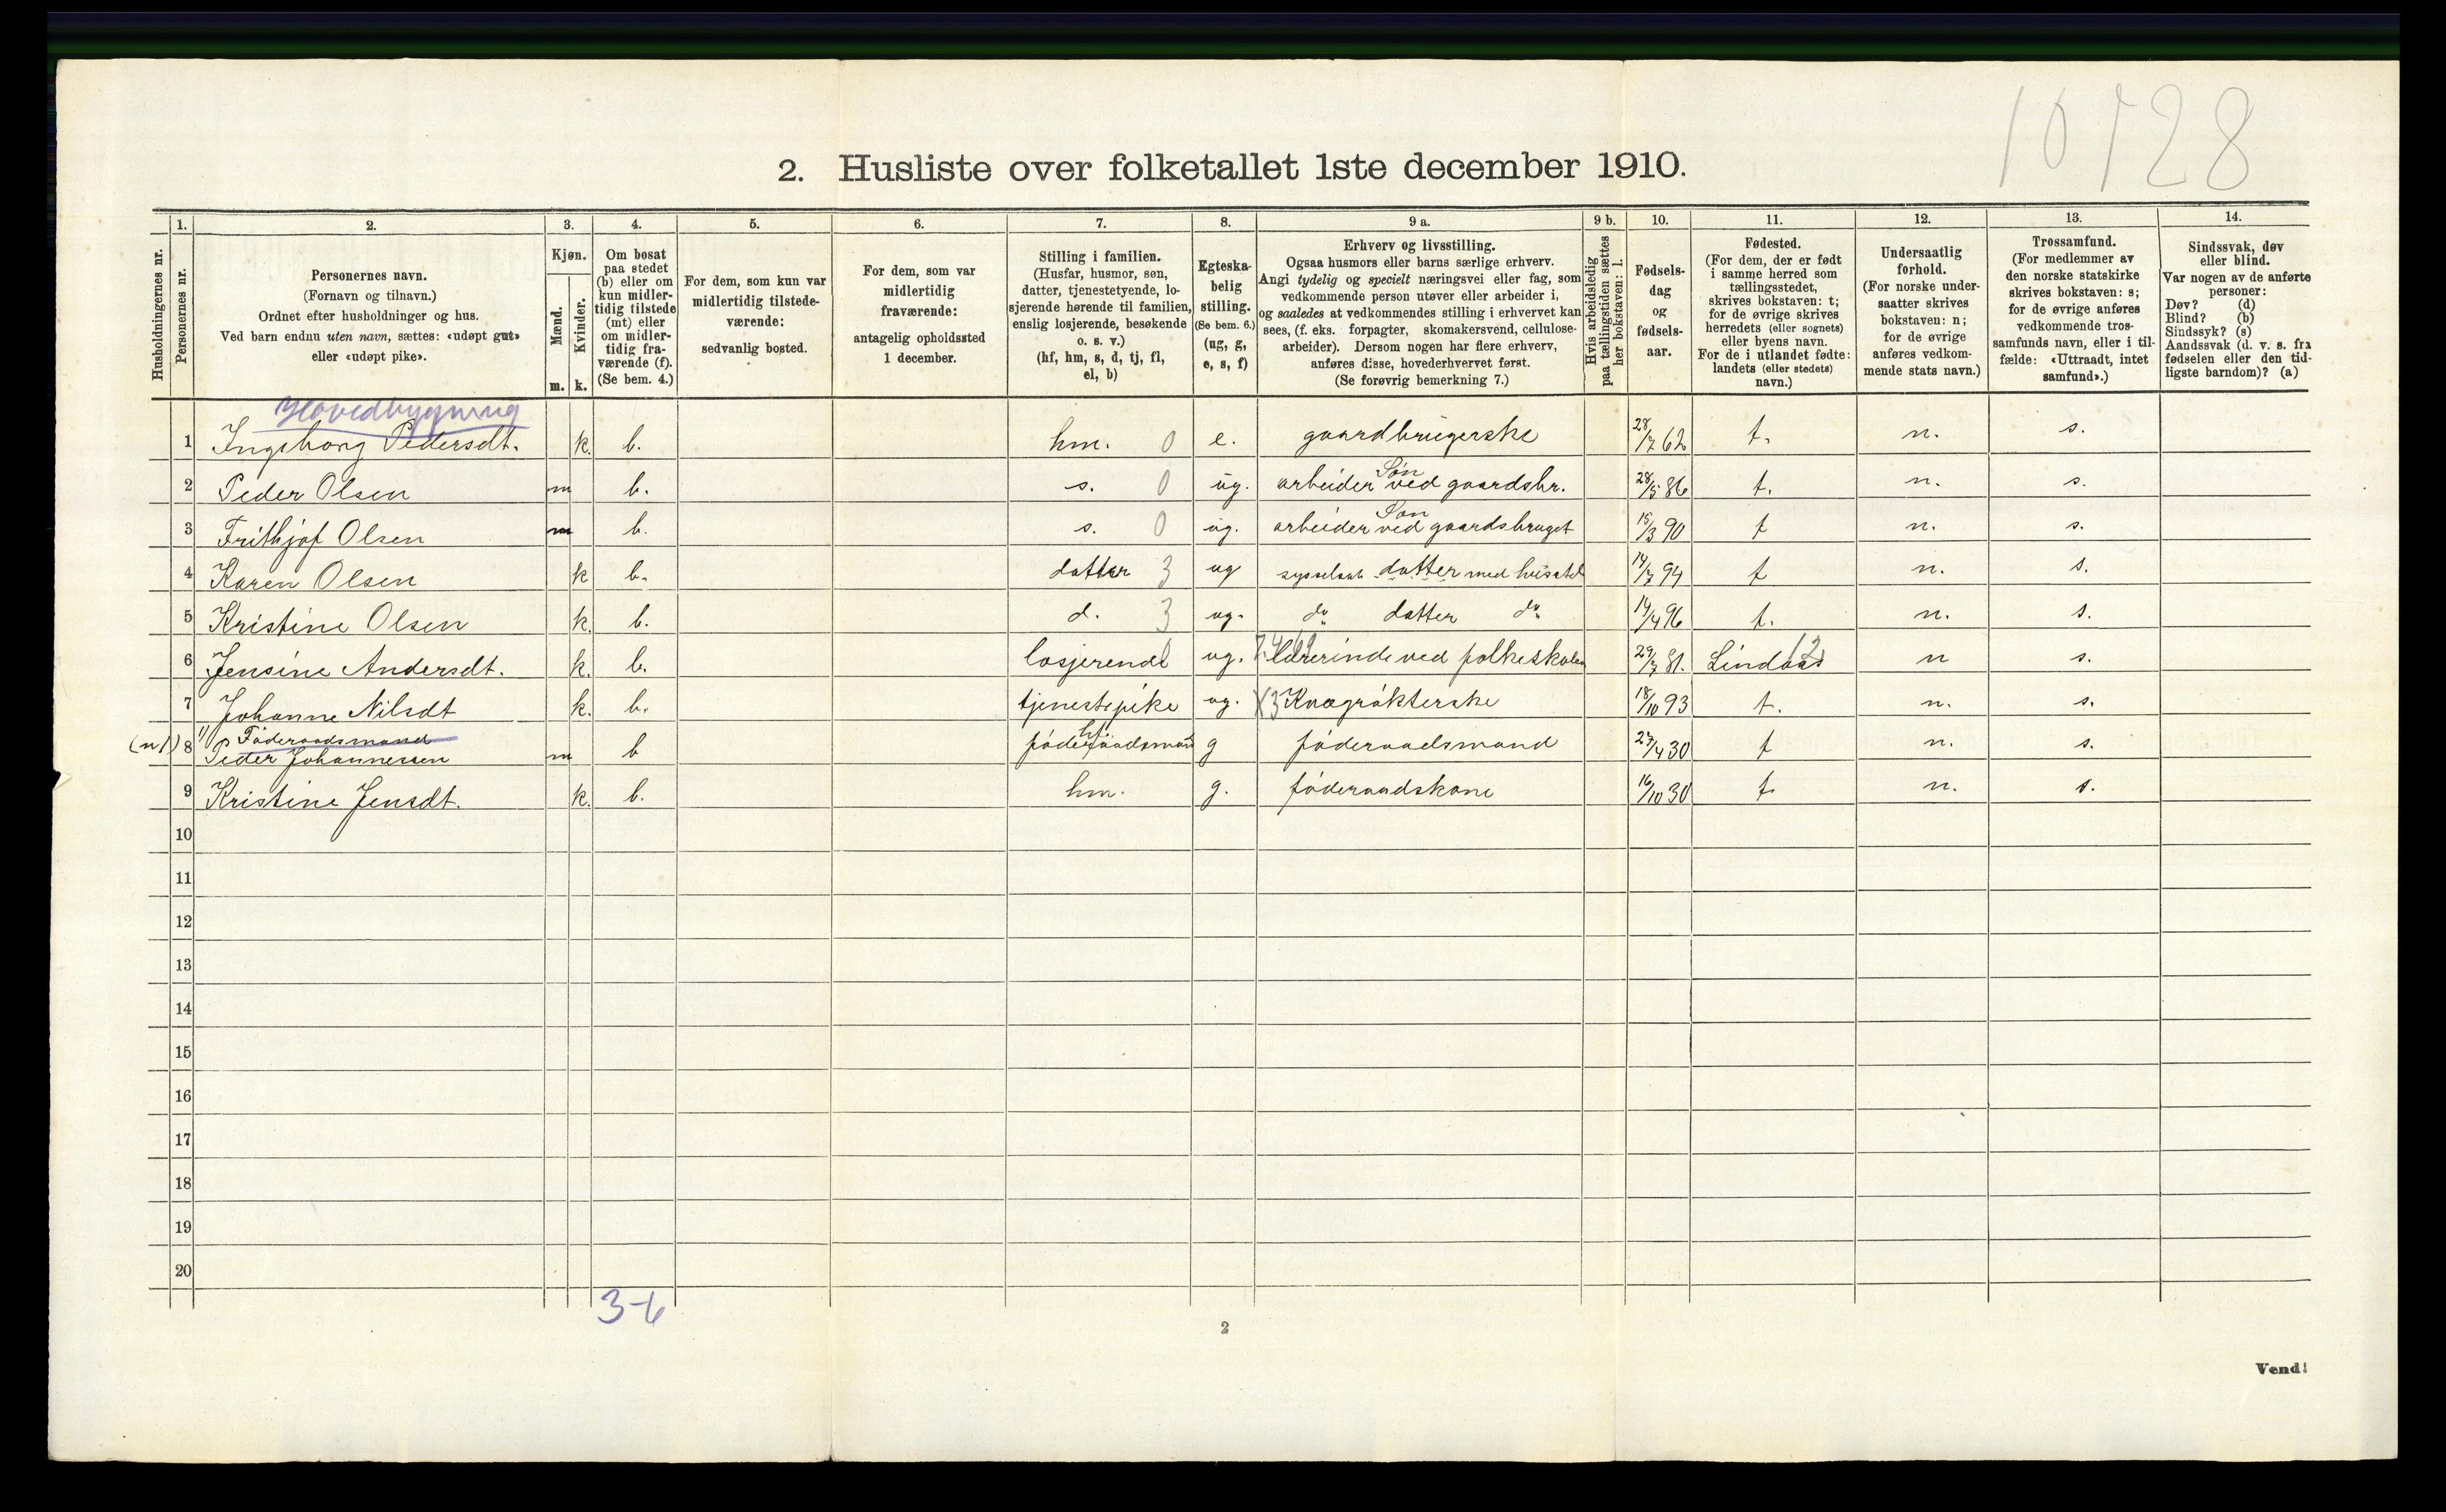 10128
2. Husliste over folketallet 1ste december 1910.
Husholdningernes nr.
1.
Personernes nr.
2.
Personernes navn.
(Fornavn og tilnavn.)
Ordnet efter husholdninger og hus.
Ved barn endnu uten navn, sættes: «udøpt gut»
eller «udøpt pike».
3.
Kjøn.
Mænd.
Kvinder.
m. k.
4.
Om bosat
paa stedet
(b) eller om
kun midler-
tidig tilstede
(mt) eller
om midler-
tidig fra-
værende (f).
(Se bem. 4.)
5.
For dem, som kun var
midlertidig tilstede-
værende:
sedvanlig bosted.
6.
For dem, som var
midlertidig
fraværende:
antagelig opholdssted
1 december.
7.
Stilling i familien.
(Husfar, husmor, søn,
datter, tjenestetyende, lo-
sjerende hørende til familien,
enslig losjerende, besøkende
o. s. v.)
(hf, hm, s, d, tj, fl,
el, b)
8.
Egteska-
belig
stilling.
(Se bem. 6.)
(ug, g,
e, s, f)
9 a.
Erhverv og livsstilling.
Ogsaa husmors eller barns særlige erhverv.
Angi tydelig og specielt næringsvei eller fag, som
vedkommende person utøver eller arbeider i,
og saaledes at vedkommendes stilling i erhvervet kan
sees, (f. eks. forpagter, skomakersvend, cellulose-
arbeider). Dersom nogen har flere erhverv,
anføres disse, hovederhvervet først.
(Se forøvrig bemerkning 7.)
9 b.
Hvis arbeidsledig
paa tællingstiden sættes
her bokstaven: l.
10.
Fødsels-
dag
og
fødsels-
aar.
11.
Fødested.
(For dem, der er født
i samme herred som
tællingsstedet,
skrives bokstaven: t;
for de øvrige skrives
herredets (eller sognets)
eller byens navn.
For de i utlandet fødte:
landets (eller stedets)
navn.)
12.
Undersaatlig
forhold.
(For norske under-
saatter skrives
bokstaven: n;
for de øvrige
anføres vedkom-
mende stats navn.)
13.
Trossamfund.
(For medlemmer av
den norske statskirke
skrives bokstaven: s;
for de øvrige anføres
vedkommende tros-
samfunds navn, eller i til-
fælde: «Uttraadt, intet
samfund».)
14.
Sindssvak, døv
eller blind.
Var nogen av de anførte
personer:
Døv? (d)
Blind? (b)
Sindssyk? (s)
Aandssvak (d. v. s. fra
fødselen eller den tid-
ligste barndom)? (a)
Hovedbygning
1 Ingeborg Pedersdt. k. b. hm. 0 e. gaardbrugerske 28/7 62 t. n. s.
2 Peder Olsen m b. s. 0 ug. arbeider Søn ved gaardsbr. 28/5 86 t. n. s.
3 Frithjof Olsen m b. s. 0 ug. arbeider Søn ved gaardsbruget 15/3 90 t n. s.
4 Karen Olsen k b. datter 3 ug sysselsat datter med husstel 14/7 94 t n. s.
5 Kristine Olsen k. b. d. 3 ug. do datter do 14/4 96 t. n. s.
6 Jensine Andersdt. k. b. losjerende ug. lærerinde ved folkeskolen 29/7 81. Lindaas 12 n s.
7 Johanne Nilsdt k. b. tjenestepike ug. X3 Kreaturrøkterske 18/10 93 t. n. s.
Føderaadsmand
8 Peder Johannessen m b føderaadsmand hf g føderaadsmand 27/4 30 t n. s.
9 Kristine Jensdt. k. b. hm. g. føderaadskone 16/10 30 t. n. s.
10
11
12
13
14
15
16
17
18
19
20
3-6
2
Vend!